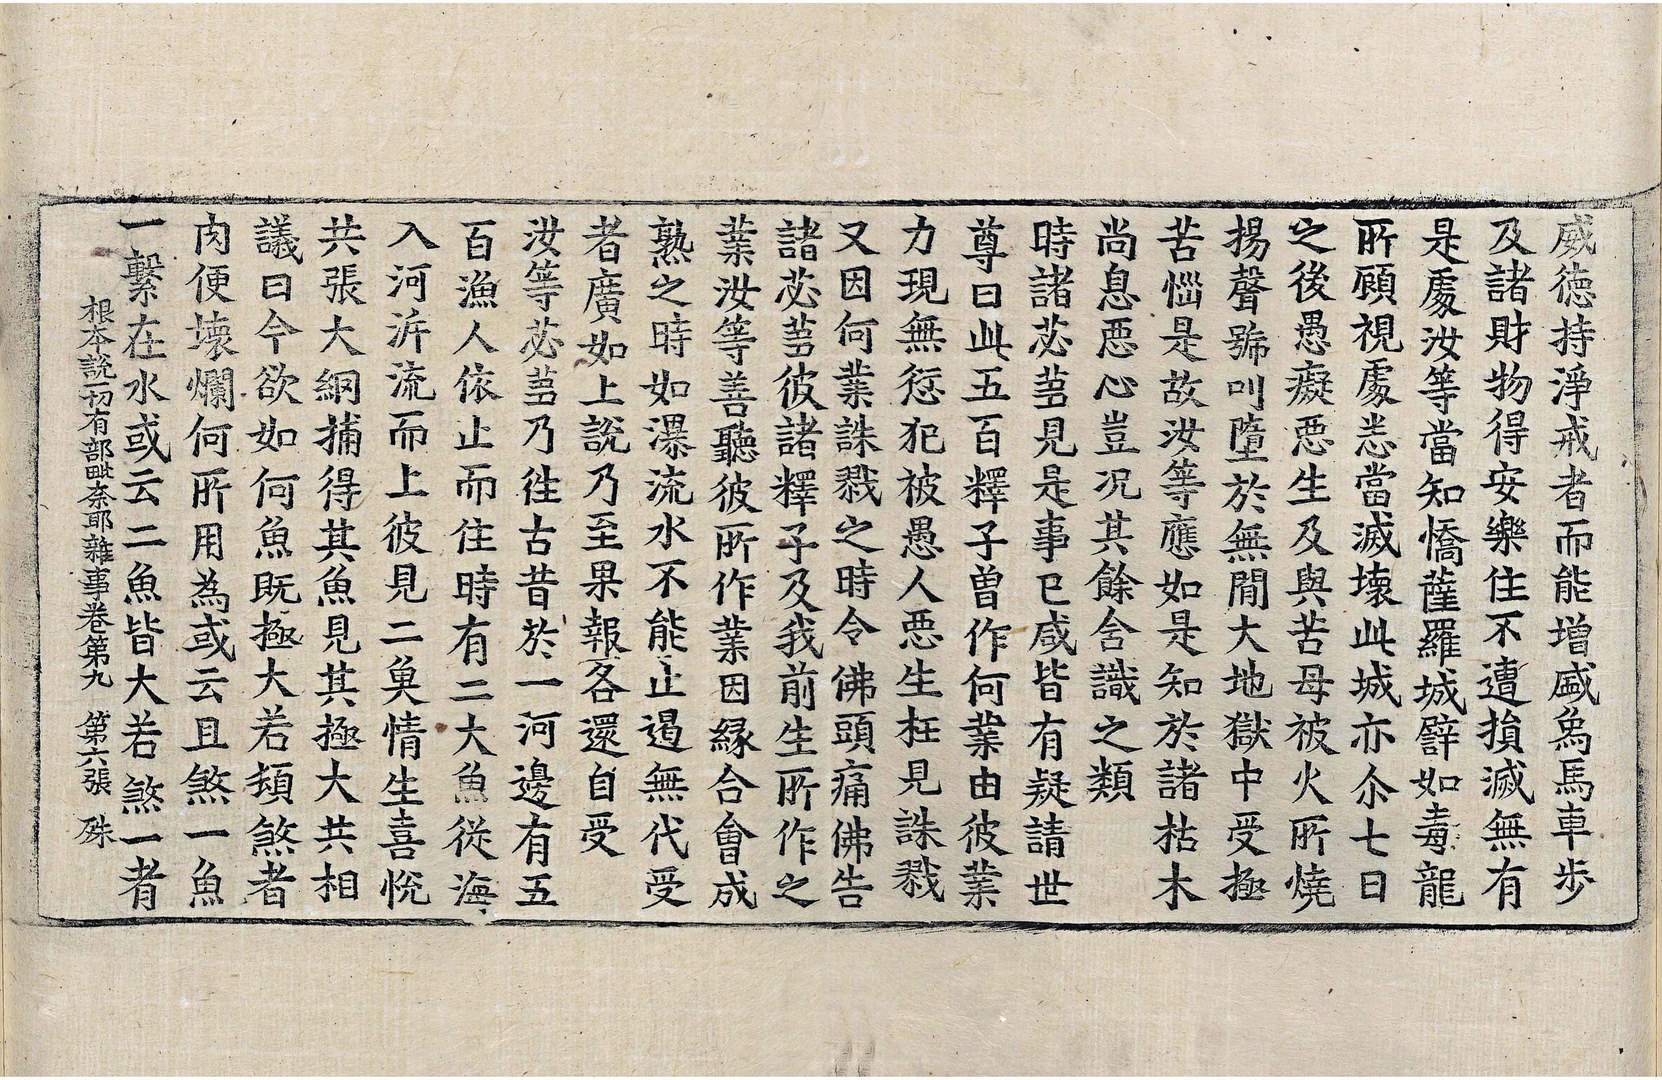 威德持淨戒者而能增盛象馬車步
及諸財物得安樂住不遭損滅無有
是處汝等當知憍薩羅城譬如毒龍
所顧視處悉當滅壞此城亦尒七日
之後愚癡惡生及與苦母被火所燒
揚聲號叫墮於無間大地獄中受極
苦惱是故汝等應如是知於諸枯木
尚息惡心豈況其餘含識之類
時諸苾芻見是事已咸皆有疑請世
尊曰此五百釋子曾作何業由彼業
力現無愆犯被愚人惡生枉見誅戮
又因何業誅戮之時令佛頭痛佛告
諸苾芻彼諸釋子及我前生所作之
業汝等善聽彼所作業因緣合會成
熟之時如瀑流水不能止遏無代受
者廣如上說乃至果報各還自受
汝等苾芻乃徃古昔於一河邊有五
百漁人依止而住時有二大魚從海
入河泝流而上彼見二魚情生喜悅
共張大網捕得其魚見其極大共相
議曰今欲如何魚既極大若頓煞者
肉便壞爛何所用為或云且煞一魚
一繫在水或云二魚皆大若煞一者
根本說一切有部毗柰耶雜事卷第九　第六張　殊